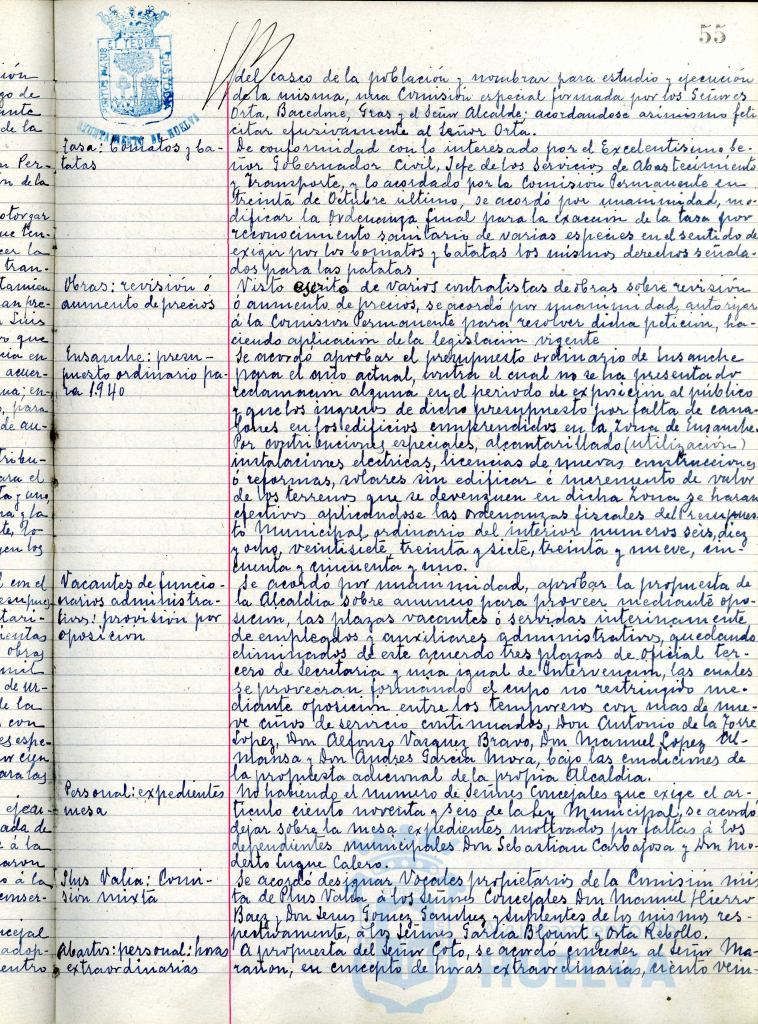 55
del casco de la población y nombrar para estudio y ejecución
de la misma, una Comisión especial formada por los Señores
Orta, Bacedme, Gras y el Señor Alcalde; acordandose asimismo feli
citar efusivamente al Señor Orta.
Tasa: tomatos y ba-
tatas
De conformidad con lo interesado por el Excelentisimo Se-
ñor Gobernador Civil, Jefe de los Servicios de Abastecimiento
y Transporte, y lo acordado por la Comision Permanente en
treinta de Octubre último, se acordó por unanimidad, mo-
dificar la Ordenanza final para la exaccion de la tasa por
reconocimiento sanitario de varias especies en el sentido de
exigir por los tomatos y batatas los mismos derechos señala-
dos para las patatas
Obras: revisión ó
aumento de precios
Visto escrito de varios contratistas de obras sobre revisión
ó aumento de precios, se acordó por unanimidad, autorizar
á la Comision Permanente para resolver dicha peticion, ha-
ciendo aplicacion de la legislacion vigente
Ensanche: presu-
puesto ordinario pa-
ra 1.940
Se acordó aprobar el presupuesto ordinario de Ensanche
para el año actual, contra el cual no se ha presentado
reclamacion alguna en el periodo de exposicion al público
y que los ingresos de dicho presupuesto por falta de cana-
lones en los edificios comprendidos en la Zona de Ensanche.
Por contribuciones especiales, alcantarillado (utilización)
instalaciones electricas, licencias de nuevas construcciones
ó reformas, solares sin edificar é incremento de valor
de los terrenos que se devenguen en dicha Zona se haran
efectivos aplicandose las ordenanzas fiscales del Presupues-
to Municipal ordinario del interior numeros seis, diez
y ocho, veintisiete, treinta y siete, treinta y nueve, cin-
cuenta y cincuenta y uno.
Vacantes de funcio-
narios administra-
tivos: provision por
oposicion
Se acordó por unanimidad, aprobar la propuesta de
la Alcaldia sobre anuncio para proveer mediante opo-
sicion, las plazas vacantes ó servidas interinamente
de empleados y auxiliares administrativos, quedando
eliminados de este acuerdo tres plazas de Oficial ter-
cero de Secretaria y una igual de Intervencion, las cuales
se proveeran formando el cupo no restringido me-
diante oposicion entre los temporeros con mas de nue-
ve años de servicio continuados, Don Antonio de la Torre
Lopez, Don Alfonso Vazquez Bravo, Don Manuel Lopez Al-
mansa y Don Andres Garcia Mora, bajo las condiciones de
la propuesta adicional de la propia Alcaldia.
Personal: expedientes
mesa
No habiendo el numero de Señores Concejales que exige el ar-
ticulo ciento noventa y seis de la Ley Municipal, se acordó
dejar sobre la mesa expedientes motivados por faltas á los
dependientes municipales Don Sebastian Carbajosa y Don Mo-
desto Luque Calero.
Plus Valia: Comi-
sion mixta
Se acordó designar Vocales propietarios de la Comisión mix
ta de Plus Valia á los Señores Concejales Don Manuel Hierro
Baez y Don Jesus Gomez Sanchez y Suplentes de los mismos res-
pectivamente, á los Señores Garcia Blount y Orta Rebollo.
Abastos: personal: horas
extraordinarias
A propuesta del Señor Coto, se acordó conceder al Señor Ma-
rañon, en concepto de horas extraordinarias, ciento vein-
AYUNTAMIENTO DE HUELVA
HUELVA